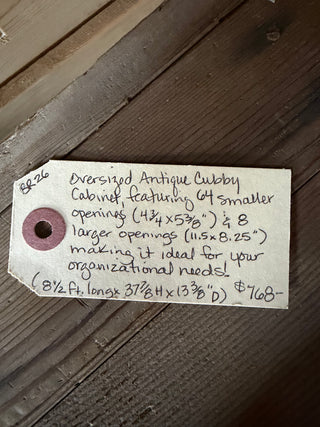 BR26
Oversized Antique Cubby
Cabinet, featuring 64 smaller
openings (4 3/4 x 5 3/8") & 8
larger openings (11.5 x 8.25")
making it ideal for your
organizational needs!
(8 1/2 ft. long x 37 7/8 H x 13 3/8" D) $768-